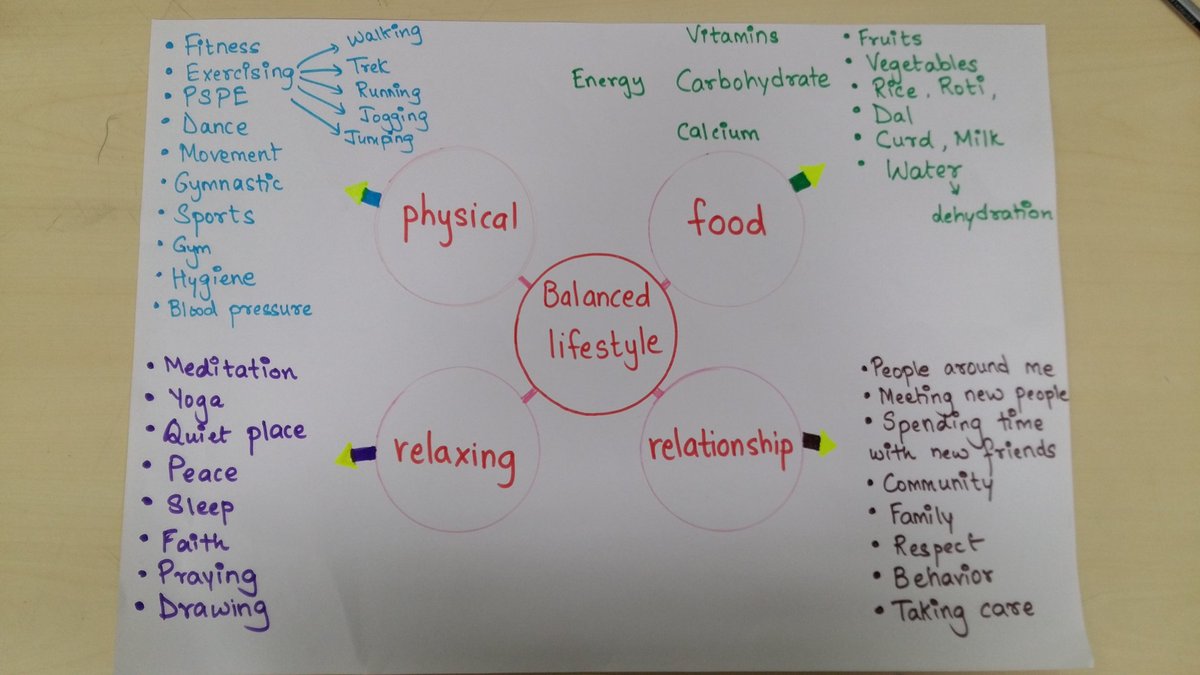 • Fitness
• Exercising
Walking
Trek
Running
Jogging
Jumping
• PSPE
• Dance
• Movement
• Gymnastic
• Sports
• Gym
• Hygiene
• Blood pressure
physical
Vitamins
Energy Carbohydrate
Calcium
• Fruits
• Vegetables
• Rice, Roti,
• Dal
• Curd, Milk
• Water
dehydration
food
Balanced
lifestyle
• Meditation
• Yoga
• Quiet place
• Peace
• Sleep
• Faith
• Praying
• Drawing
relaxing
relationship
• People around me
• Meeting new people
• Spending time
with new friends
• Community
• Family
• Respect
• Behavior
• Taking care